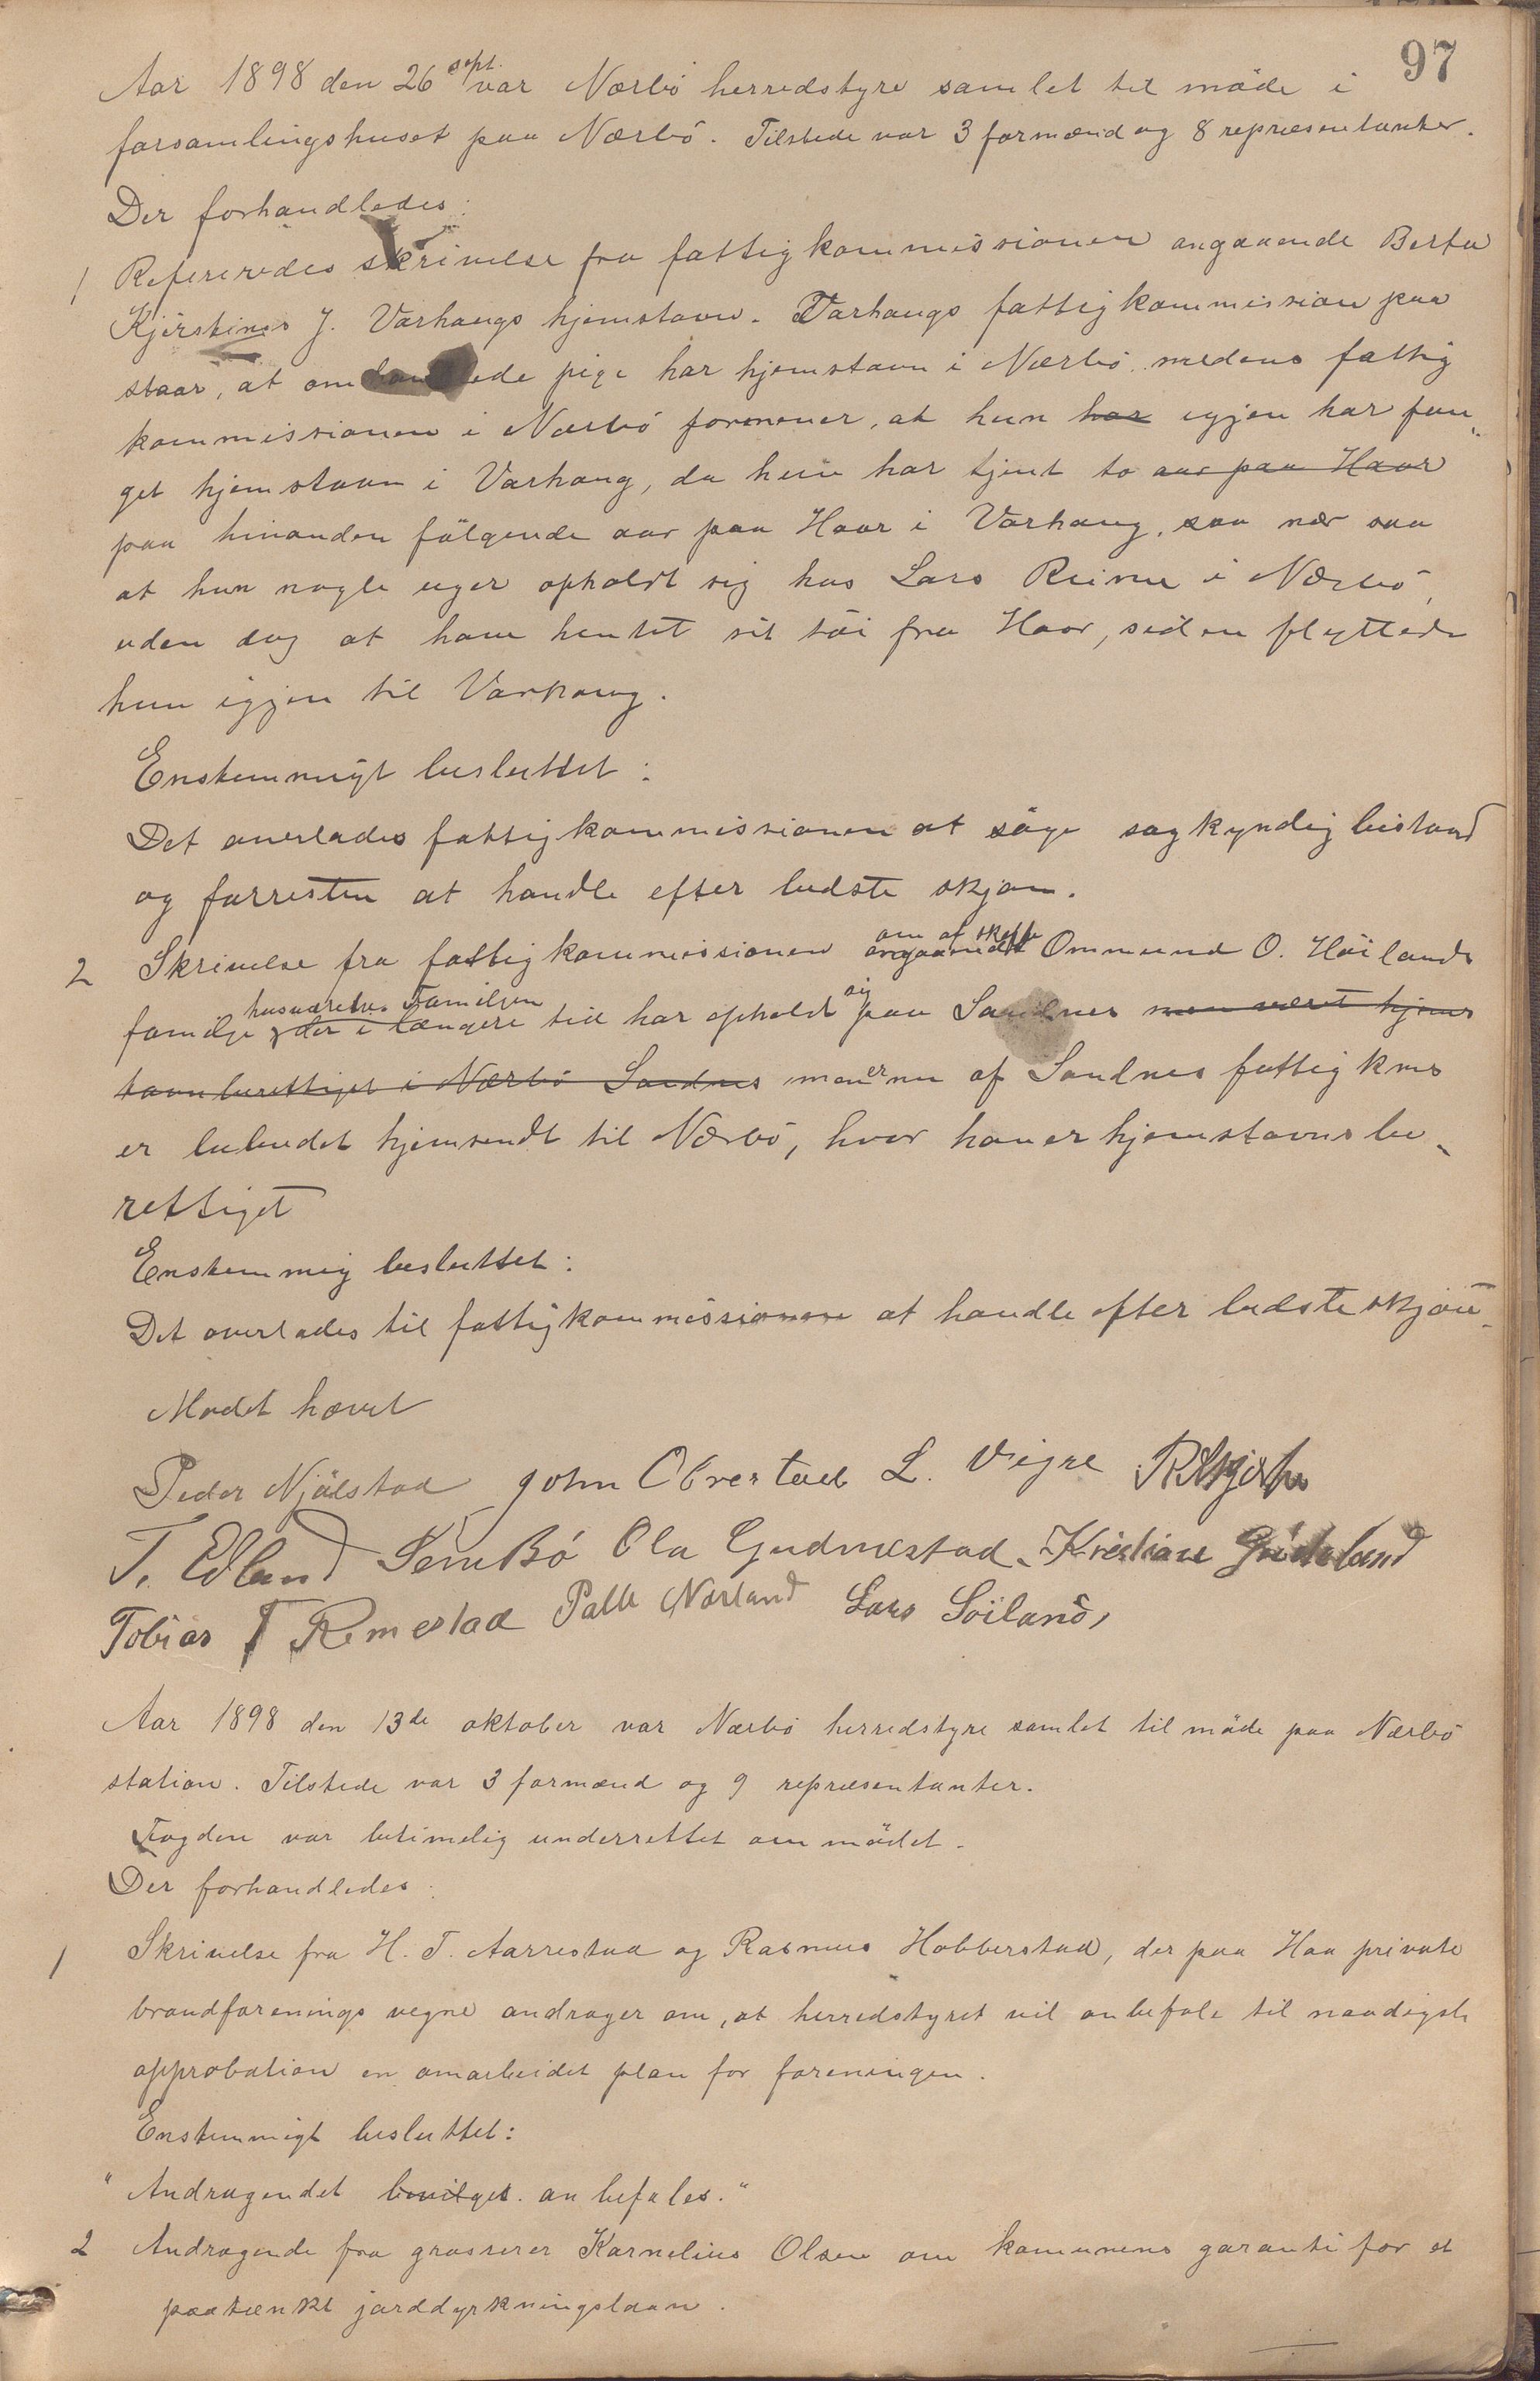 97
Aar 1898 den 26 sept. var Nærbö herredstyre samlet til möde i
forsamlingshuset paa Nærbö. Tilstede var 3 formænd og 8 repræsentanter.
Der forhandledes:
1 Refereredes skrivelse fra fattigkommissionen angaaende Berta
Kjerstines J. Varhaugs hjemstavn. Varhaugs fattigkommission paa
staar, at omhandlede pige har hjemstavn i Nærbö medens fattig
kommissionen i Nærbö formener, at hun har igjen har fun„
get hjemstavn i Varhaug, da hun har tjent to aar paa Haar
paa hinanden fölgende aar paa Haar i Varhaug, saa nær saa
at hun nogle uger opholdt sig hos Lars Reime i Nærbö,
uden dog at have hentet sit töi fra Haar, siden flyttede
hun igjen til Varhaug.
Enstemmigt besluttet:
Det overlades fattigkommissionen at söge sagkyndig bistand
og forresten at handle efter bedste skjön.
2 Skrivelse fra fattigkommissionen angaaende om at skaffe Ommund O. Höilands
familje husværelse. Familjen der i længere tid har opholdt sig paa Sandnes men været hjems
tavnberettiget i Nærbö Sandnes men er nu af Sandnes fattigkms
er bebudet hjemsendt til Nærbö, hvor han er hjemstavnsbe-
rettiget
Enstemmig besluttet:
Det overlades til fattigkommissionen at handle efter bedste skjön.
Mödet hævet
Peder Njålstad John Obrestad L. Vigre
T. Edland Sem Bö Ola Gudmestad Kristian Grödeland
Tobias T Remestad Palle Nærland Lars Söiland,
Aar 1898 den 13de oktober var Nærbö herredstyre samlet til möde paa Nærbö
station. Tilstede var 3 formænd og 9 repræsentanter.
Fogden var betimelig underrettet om mödet.
Der forhandledes:
1 Skrivelse fra H. T. Aarrestad og Rasmus Hobberstad, der paa Haa private
brandforenings vegne andrager om, at herredstyret vil anbefale til naadigst
approbation en omarbeidet plan for foreningen.
Enstemmigt besluttet:
"Andragendet bevilget. anbefales."
2 Andragende fra grosserer Kornelius Olsen om kommunens garanti for et
paatænkt jorddyrkningslaan.